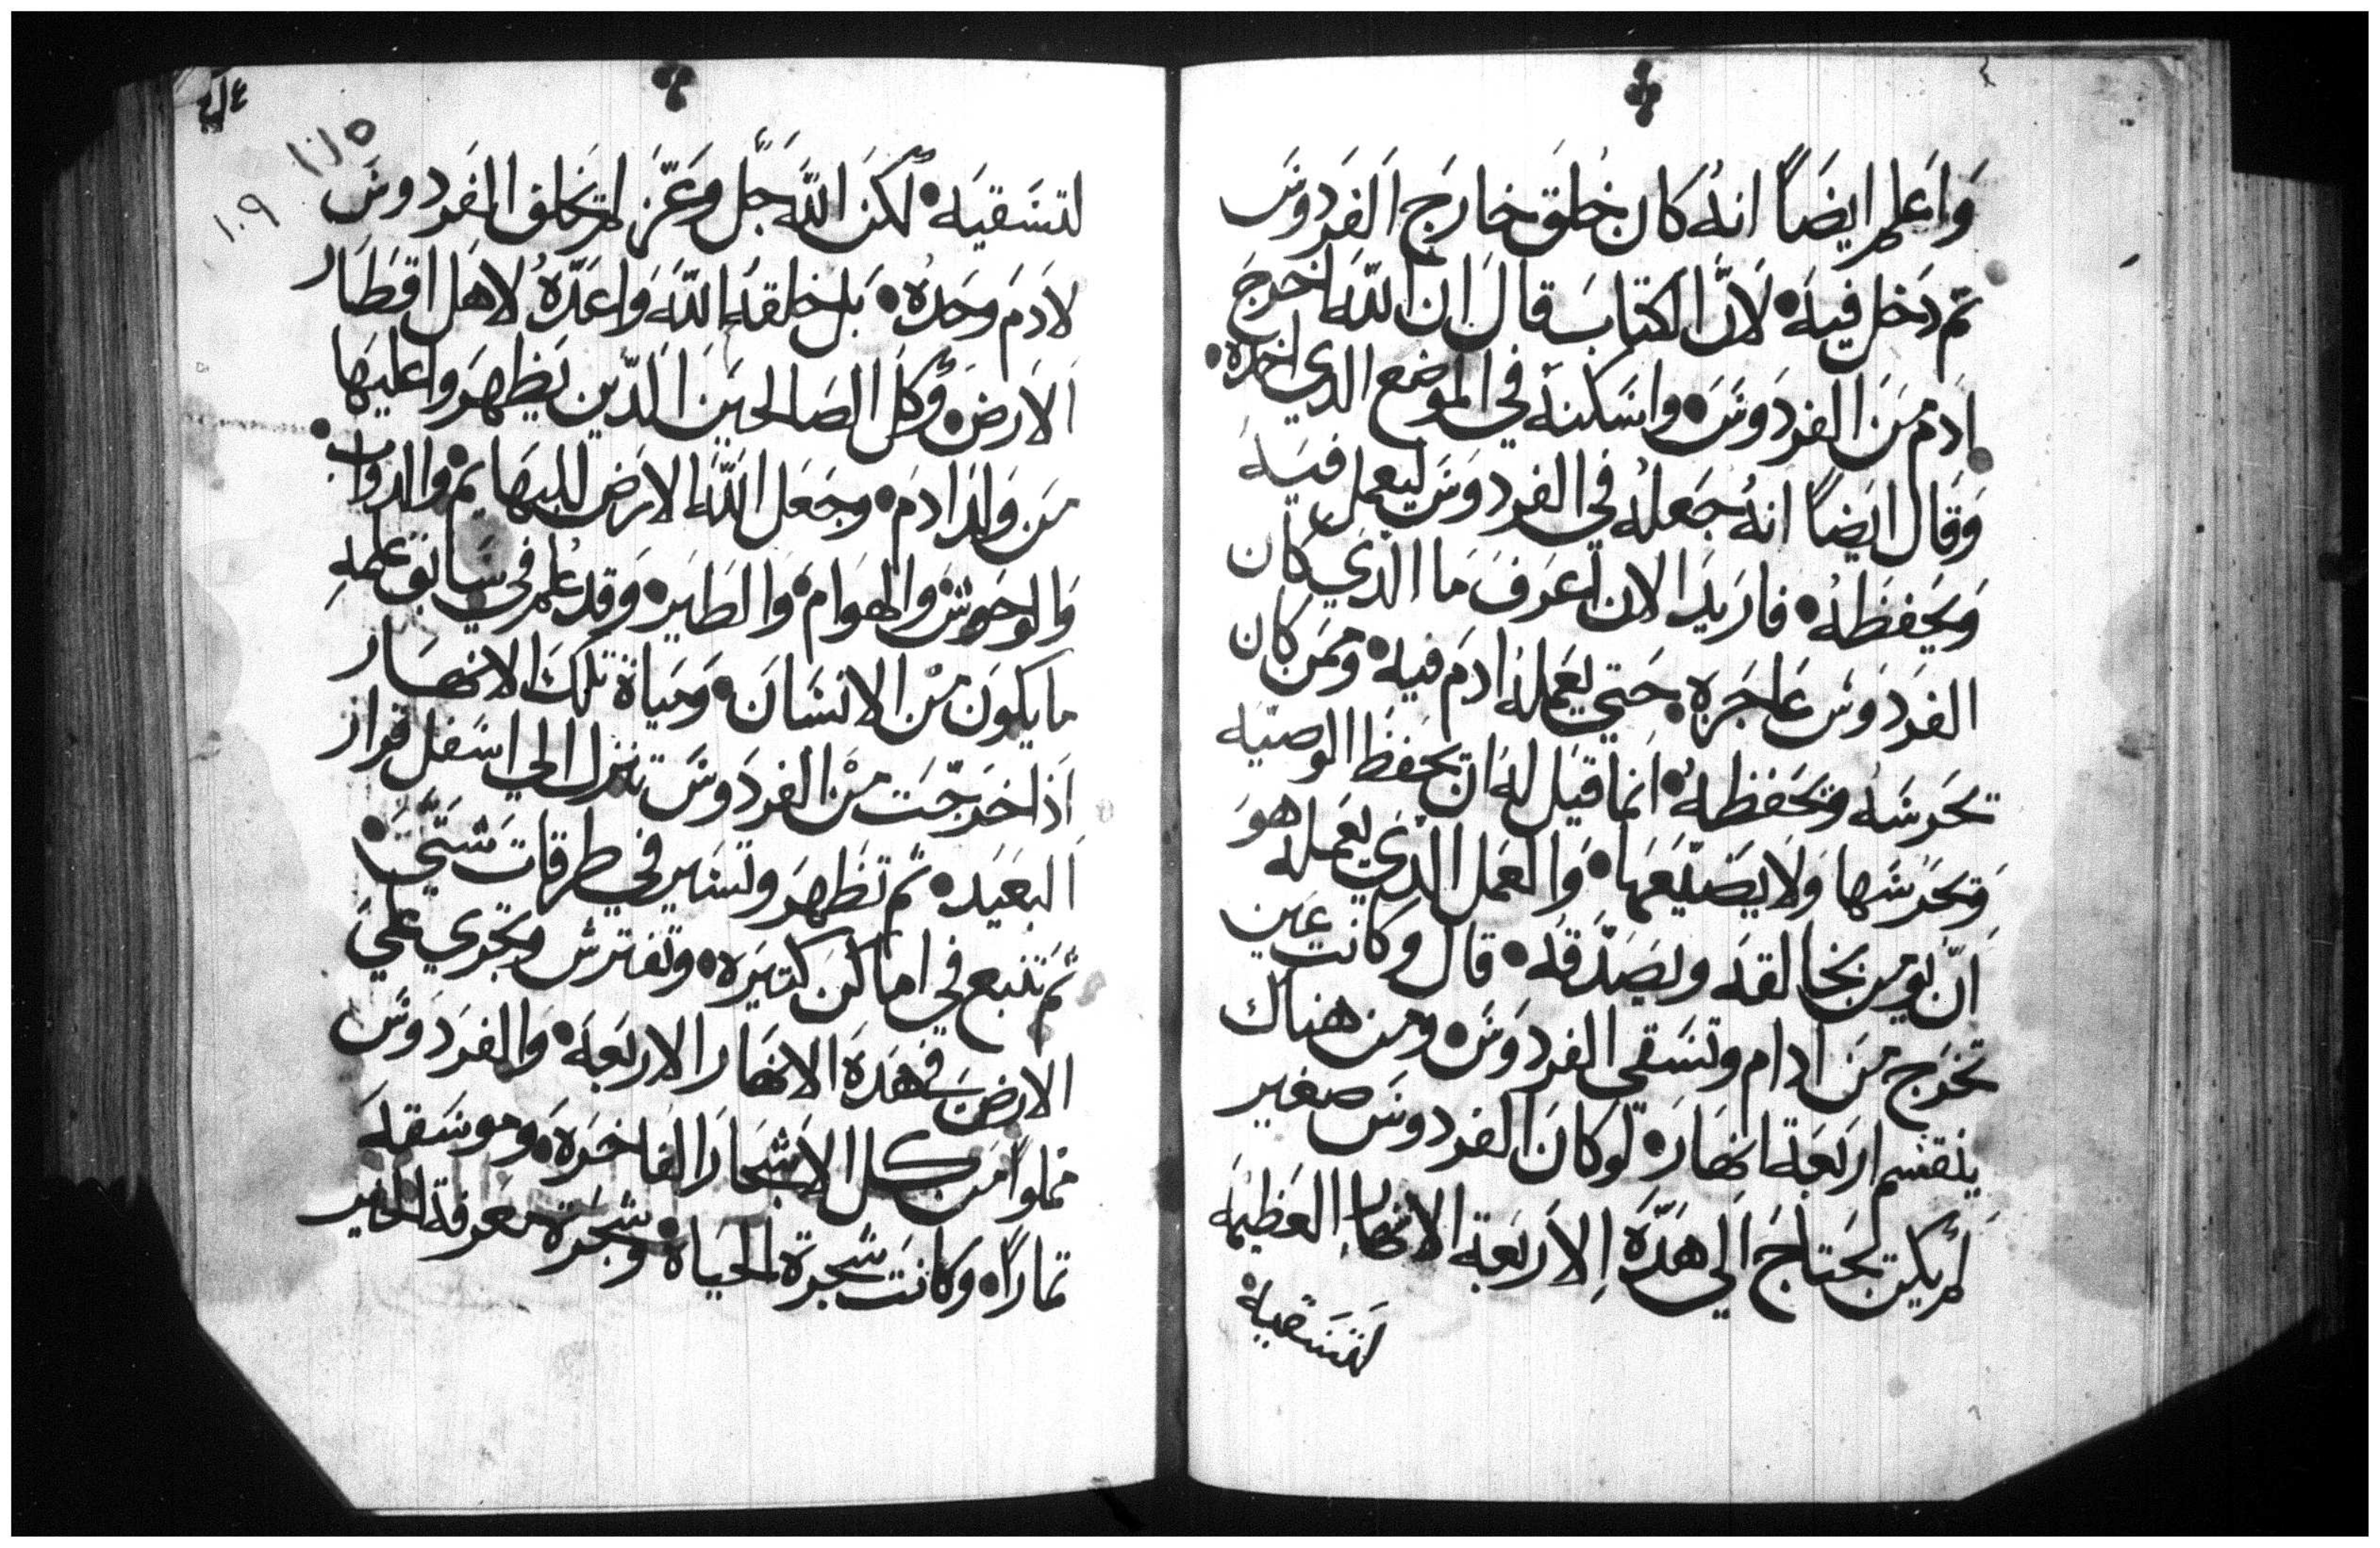 وَاعلم ايضَاً انهُ كان خُلقَ خارَج الفَردوَسَ
ثم دَخل فيهَ • لَانَّ الكتابَ قالَ ان اللّهَ اخرجَ
ادَم مَن الفردَوسَ • واسَكنهُ في الموضع الدي اخده •
وَقَال ايَضاً انهُ جَعلهُ في الفردوسَ ليَعمل فيَهَ
وَيَحفظَهُ • فاريَد الان اَعَرفَ ما الدَي كان
الفرَدوَس عَاجَزه حَتي يَعَملهُ ادَم فيه • ومَمَن كان
تحَرسَهُ وتحَفظهُ • انما قيَل لهُ ان يحفَظ الوصيَه
وَيحَرسَها وَلا يضَيّعَها • وَالعَمل الدَي يعَملهُ هوَ
اَنّ يومن بخالقهَ وَيصَدّقهُ • قال وكانت عَين
تخرَج مَن ادام وتسَقي الفردوَسَ • ومن هناك
ينقسم ارَبعَة انهَارَ • لَوكانَ الفردوسَ صغير
لم يكن يَحَتاجَ اَلي هَدّهَ الاَربَعَة الانهار العَظيمَه
لتسَقيهْ
لتسَقيَه • لكنَ اللّهَ جَل وَعَزَ لم يَخلق الفَردوسَ
لادَمَ وحَدهُ • بَل خلقهُ اللّهَ وَاعَدّهُ لاهَل اقطَار
الاَرضَ • وَكل الصَالحيَن الَدّين يَظهرَوا عليَها
مَن وَلدَ ادمَ • وجَعَل اللّهَ الارَض للبهَايم • والدواب •
وَالوحَوشَ والهوَامَ • وَالطَايرَ • وَقد عُلم في سَابق علمهِ
ما يكوَن مْن الانسَانَ • وَحيَاة تلكَ الانهَار
اَدَا خرَجَت مْن الفردَوسَ تنزل الي اسَفل قرار
البعَيَد • ثم تظَهرَ وتسَير في طرقاتَ شَتّيَ •
ثمَ تنبع في اماكن كتيَره • وتفترش وتجري عليَ
الارضَ فهَدهَ الانهَار الاربَعَة • وَالفرَدوَسَ
مملواً مَن كل الاَشجَارَ الفاخرَه • وموسَقهَ
تماراً • وكانَت شجرة الحيَاة • وشجرَة معَرفة الخير
١٠٩